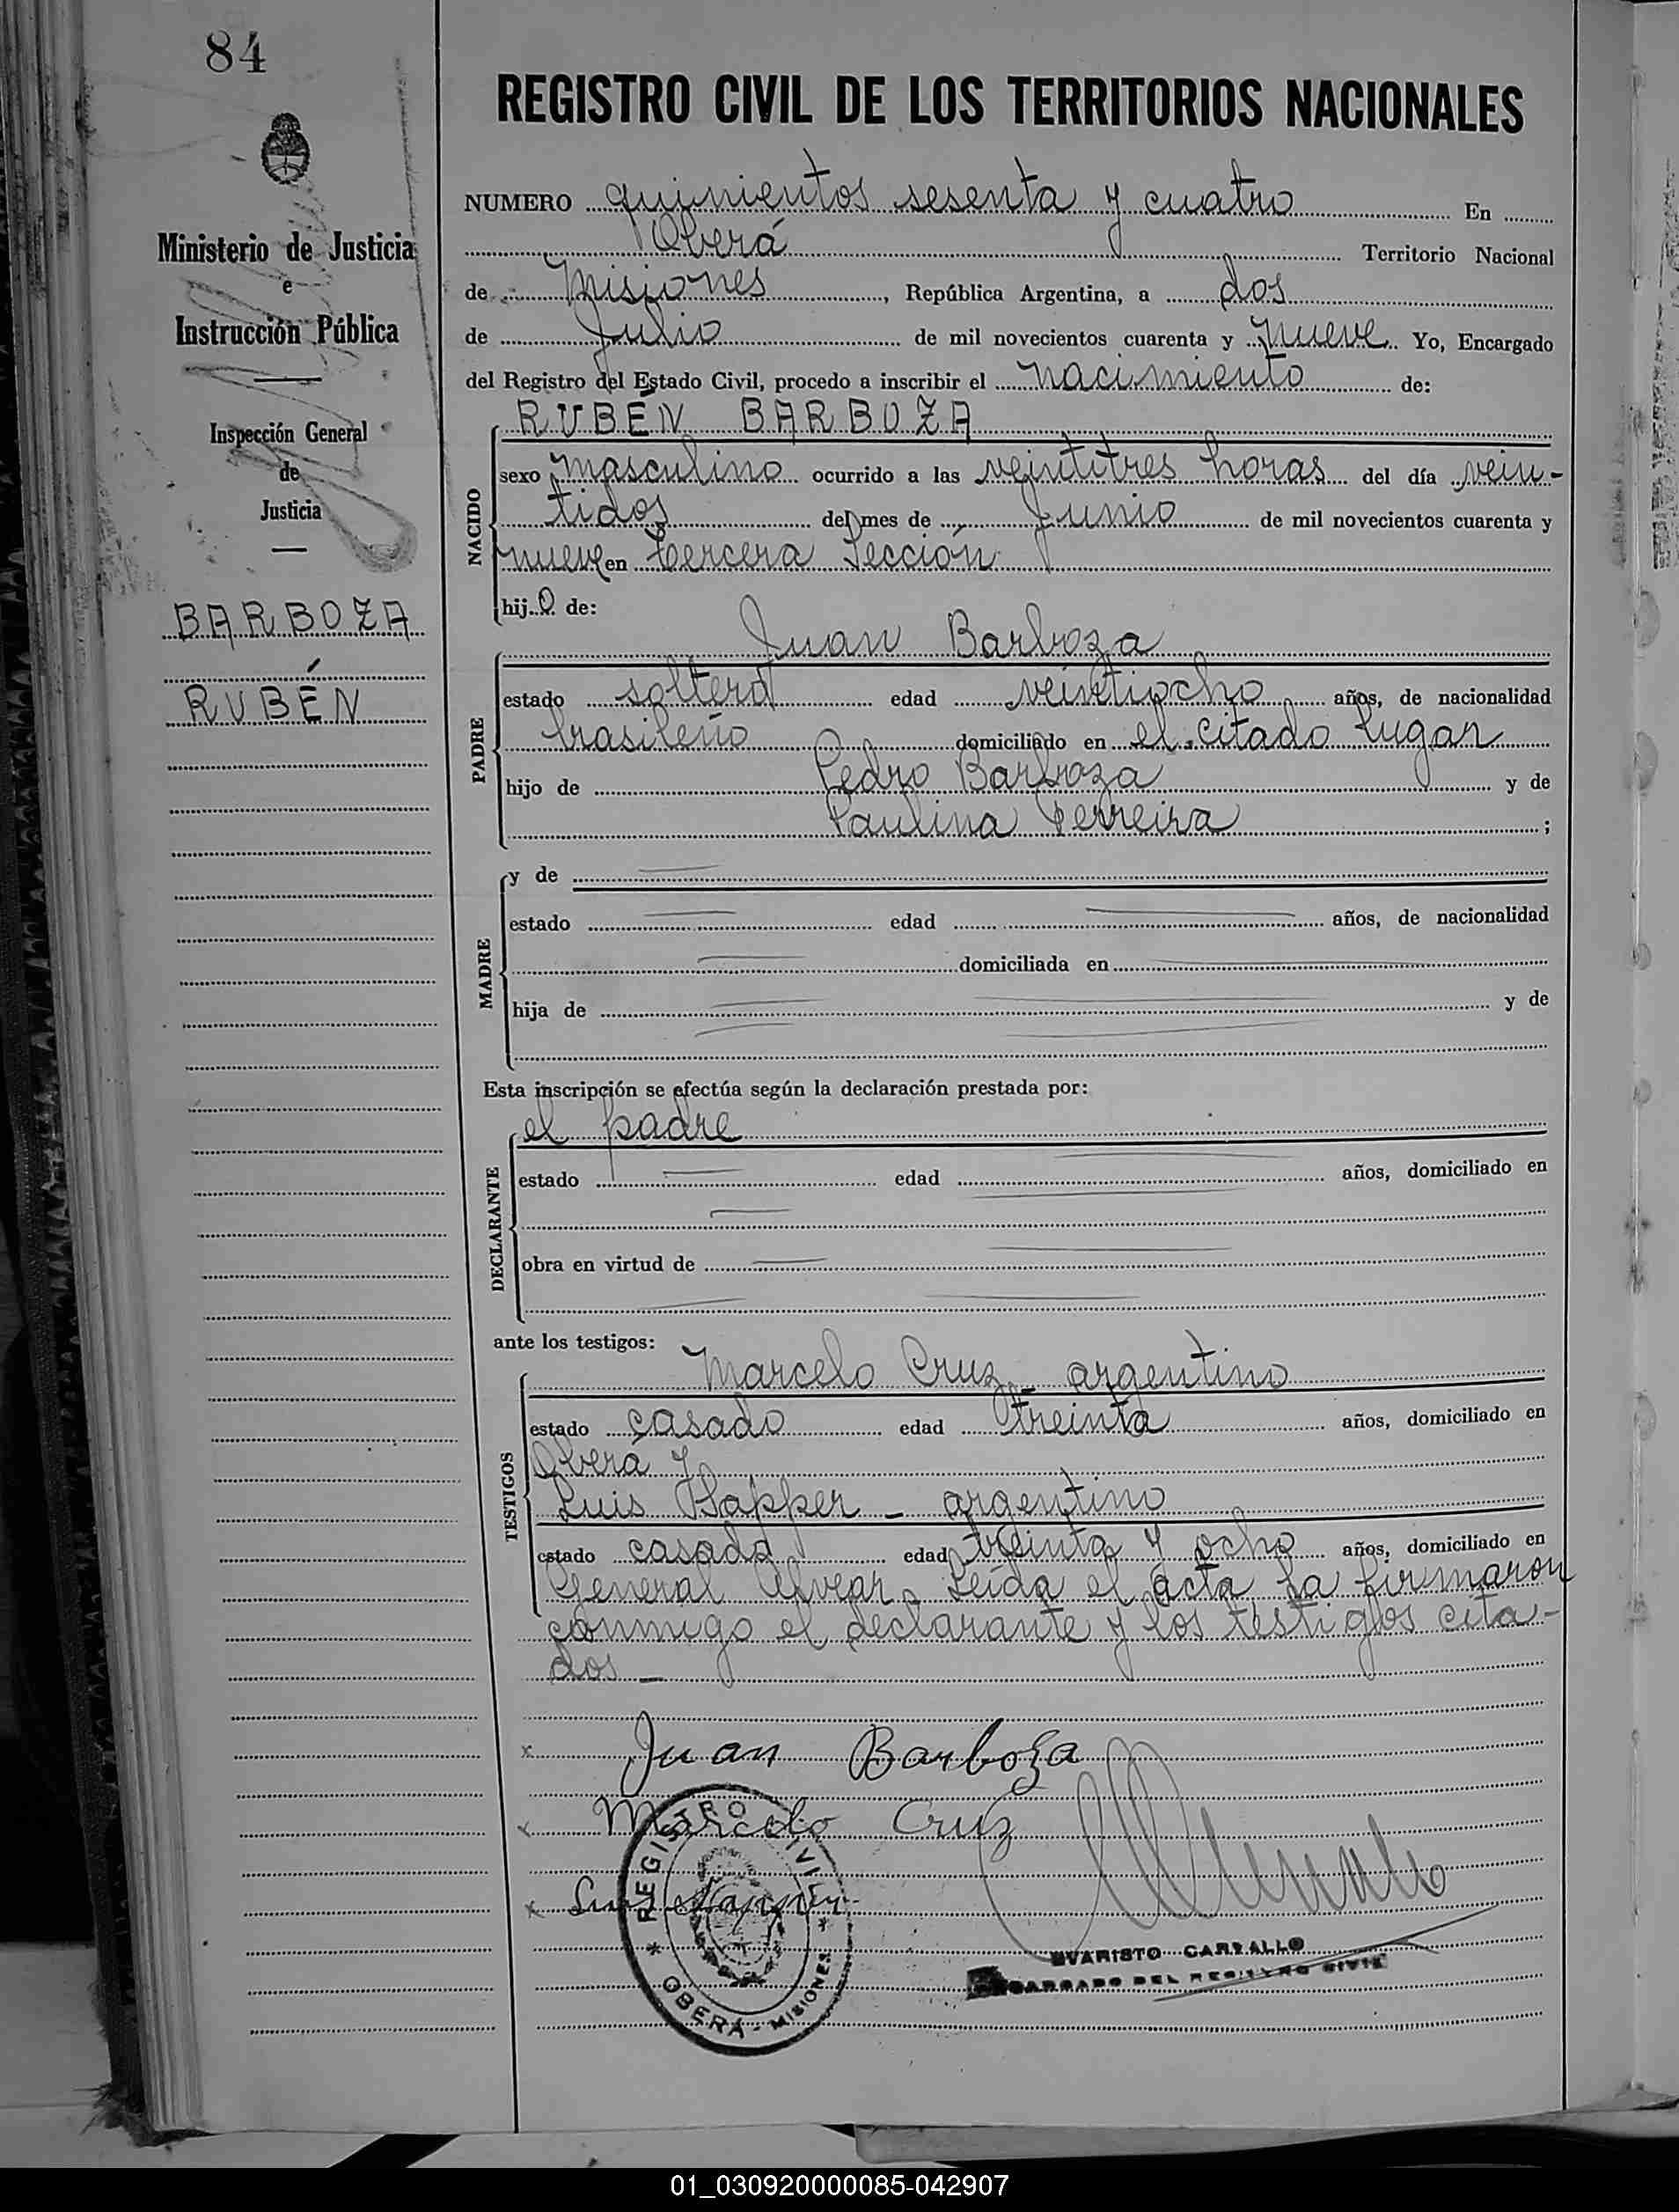 84
REGISTRO CIVIL DE LOS TERRITORIOS NACIONALES
Ministerio de Justicia
e
Instrucción Pública
Inspección General
de
Justicia
BARBOZA
RUBÉN
NUMERO quinientos sesenta y cuatro En
Oberá Territorio Nacional
de Misiones, República Argentina, a dos
de Julio de mil novecientos cuarenta y nueve Yo, Encargado
del Registro del Estado Civil, procedo a inscribir el nacimiento de:
RUBÉN BARBOZA
NACIDO
sexo masculino ocurrido a las veintitres horas del día vein-
tidos del mes de Junio de mil novecientos cuarenta y
nueve en tercera Sección
hijo de:
Juan Barboza
PADRE
estado soltero edad veintiocho años, de nacionalidad
brasileño domiciliado en el citado lugar
hijo de Pedro Barboza y de
Paulina Ferreira ;
MADRE
y de
estado edad años, de nacionalidad
domiciliada en
hija de y de
Esta inscripción se efectúa según la declaración prestada por:
DECLARANTE
el padre
estado edad años, domiciliado en
obra en virtud de
ante los testigos:
TESTIGOS
Marcelo Cruz - argentino
estado casado edad treinta años, domiciliado en
Oberá y
Luis - argentino
estado casado edad treinta y ocho años, domiciliado en
General Alvear. Leída el acta la firmaron
conmigo el declarante y los testigos cita-
dos -
x Juan Barboza
x Marcelo Cruz
x Luis
REGISTRO CIVIL
* OBERÁ - MISIONES *
EVARISTO CARVALLO
ENCARGADO DEL REGISTRO CIVIL
01_030920000085-042907